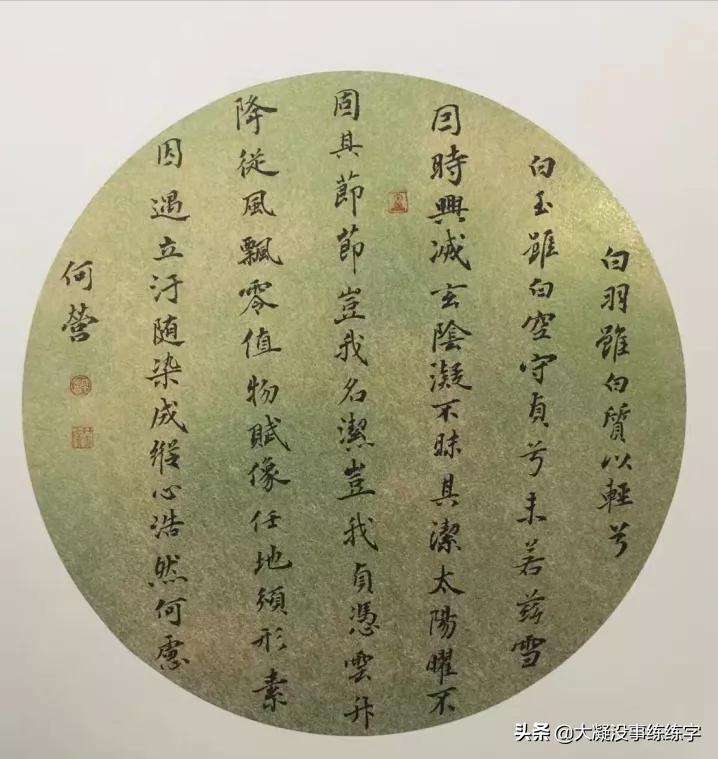 白羽雖白質以輕兮
白玉雖白空守貞兮未若茲雪
囙時興滅玄陰凝不昧其潔太陽曜不
固其節節豈我名潔豈我貞憑雲升
降從風飄零值物賦像任地頒形素
因遇立汙随染成縱心浩然何慮
何營
头条 @大凝没事练练字